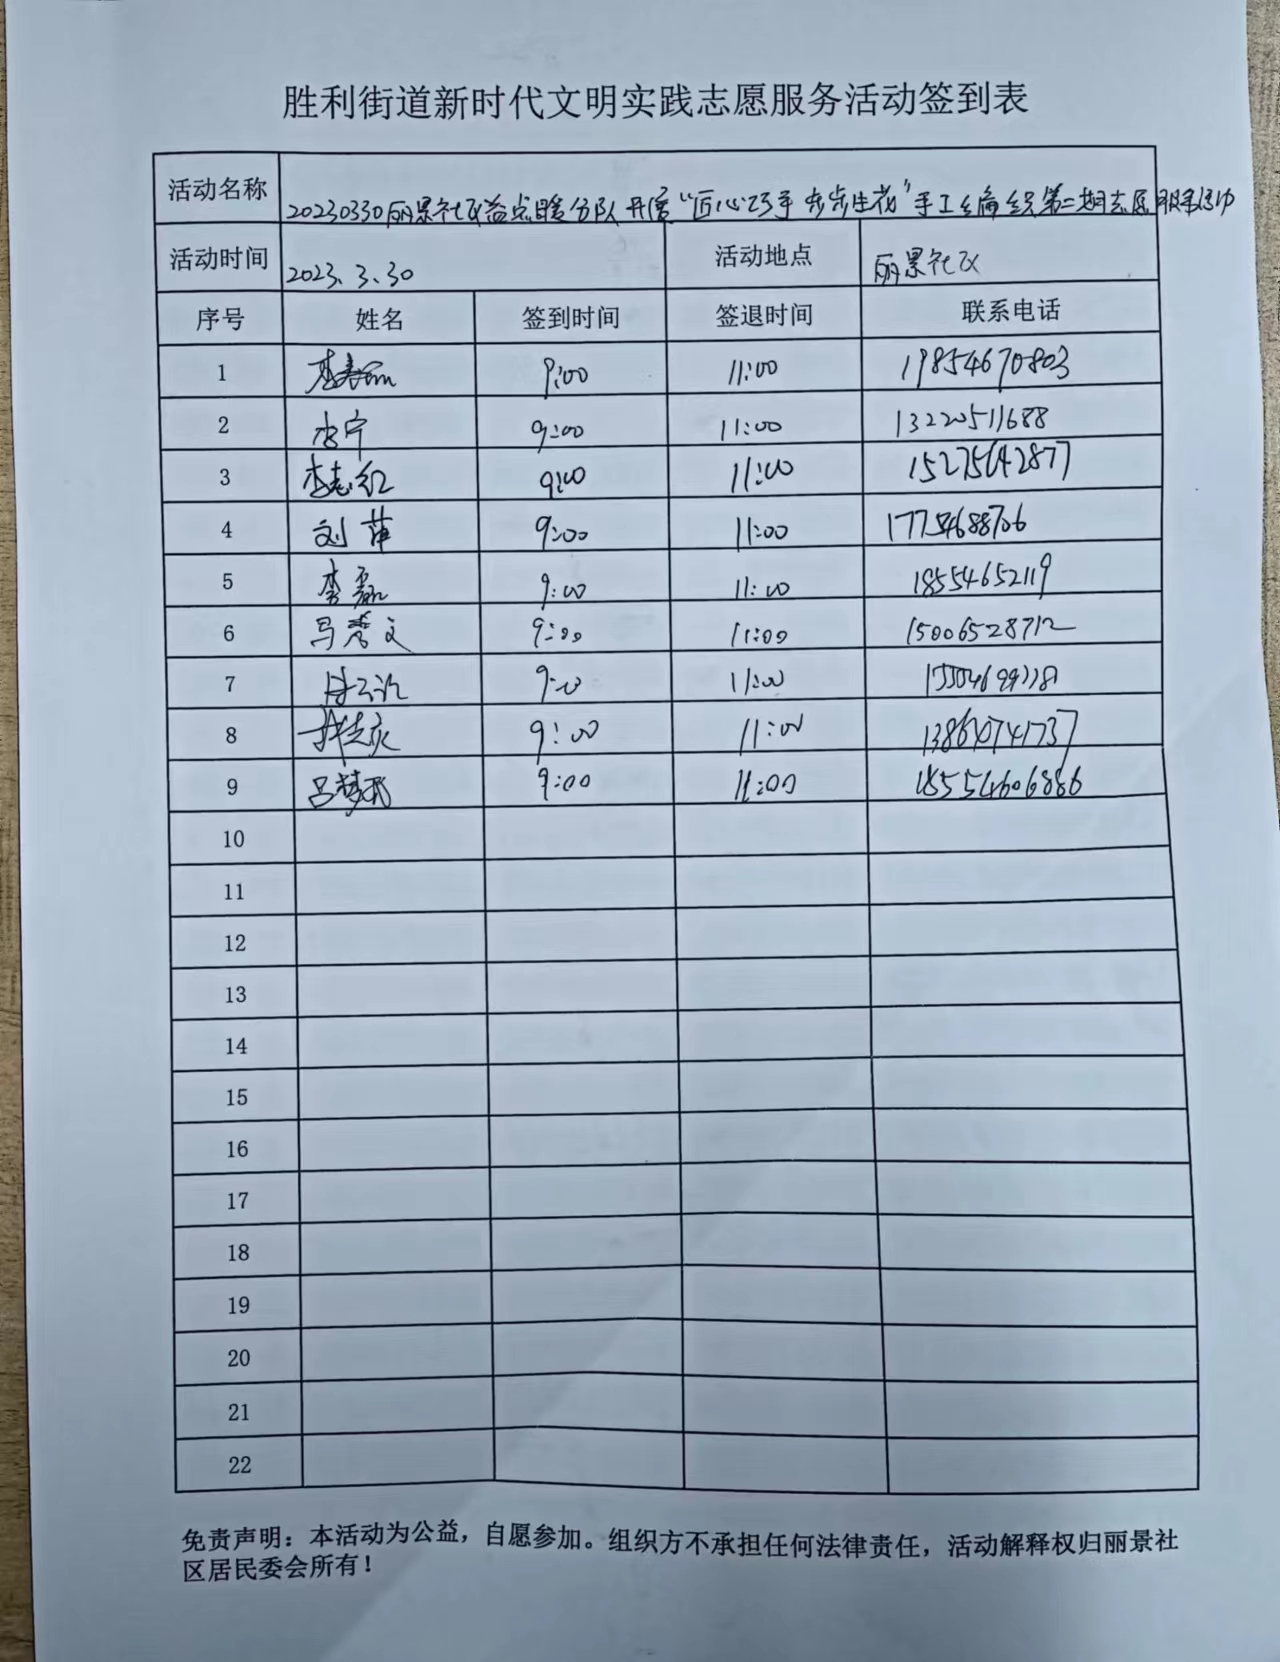 胜利街道新时代文明实践志愿服务活动签到表
活动名称 20230330丽景社区益点暖分队开展“匠心巧手 步步生花”手工编织第二期志愿服务活动
活动时间 2023.3.30 活动地点 丽景社区
序号 姓名 签到时间 签退时间 联系电话
1 9:00 11:00 19854670803
2 李宁 9:00 11:00 13220511688
3 李志红 9:00 11:00 15275642877
4 刘萍 9:00 11:00 17754688706
5 李磊 9:00 11:00 18554652119
6 马秀文 9:00 11:00 15006528712
7 9:00 11:00
8 9:00 11:00
9 吕梦 9:00 11:00 18554606886
10
11
12
13
14
15
16
17
18
19
20
21
22
免责声明：本活动为公益，自愿参加。组织方不承担任何法律责任，活动解释权归丽景社
区居民委会所有！